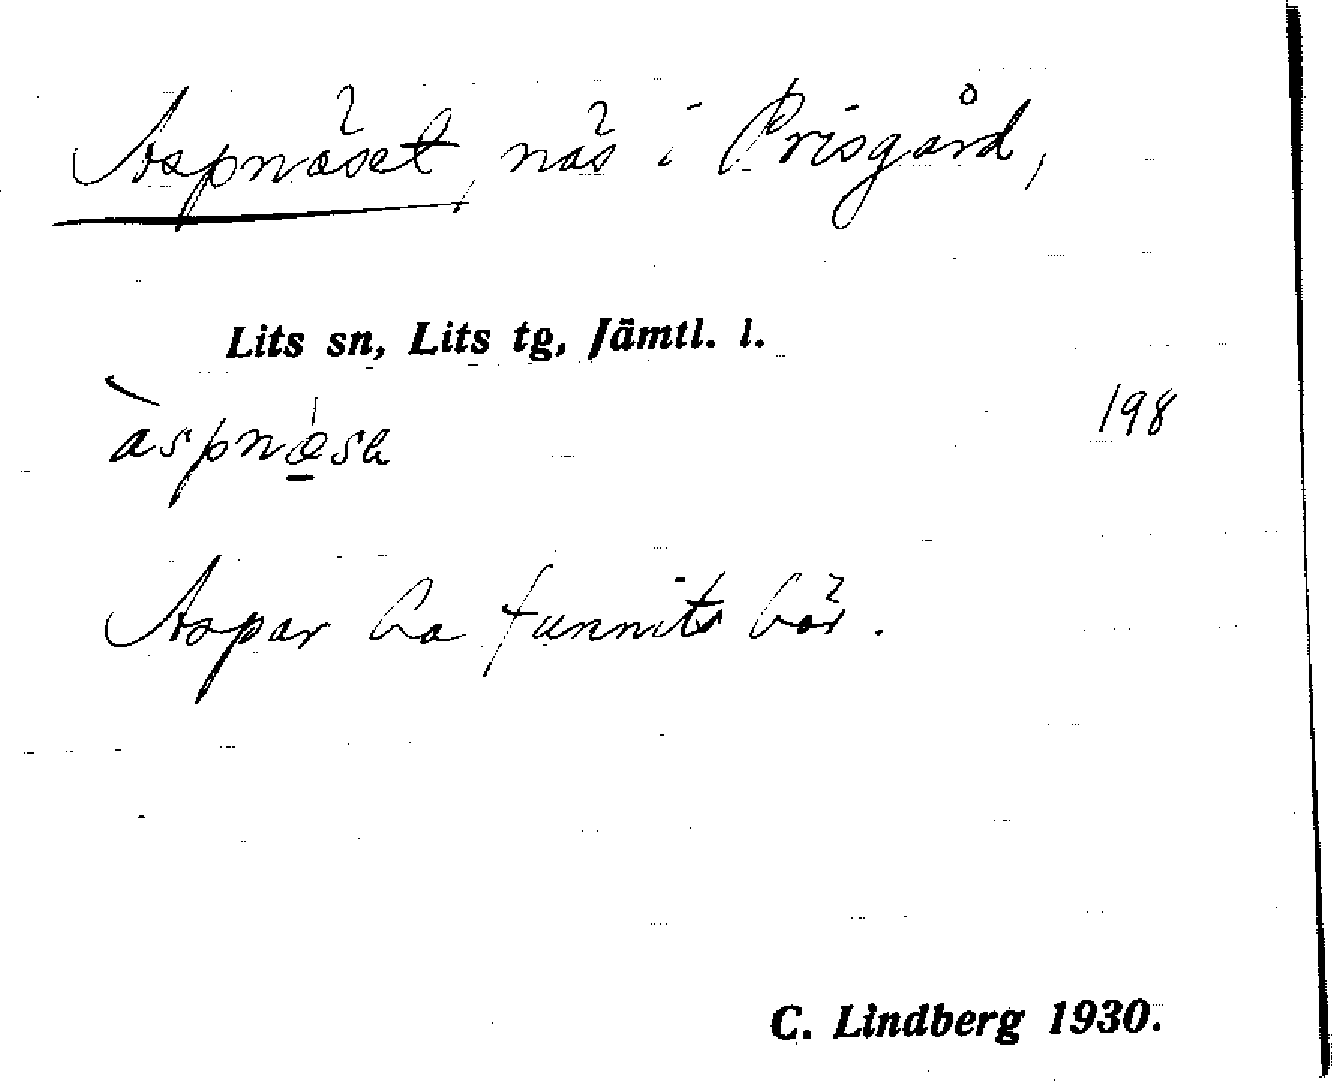 Aspnäset, näs i Prisgård,
Lits sn, Lits tg, Jämtl. l.
àspnæsa
198
Aspar ha funnits här.
C. Lindberg 1930.